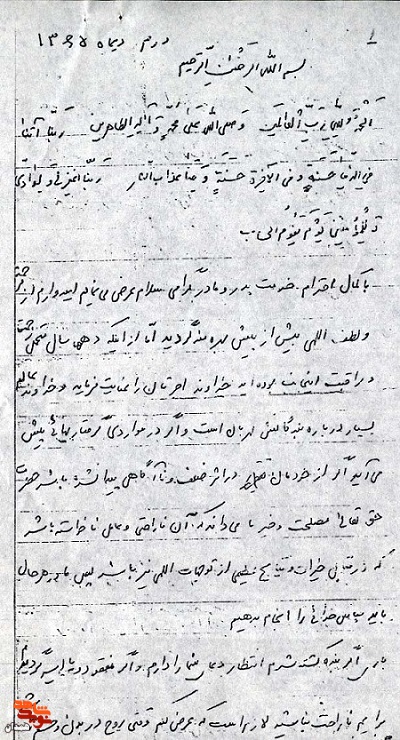 دوم دیماه ۱۳۶۴
۱
بسم الله الرحمن الرحیم
الحمد لله رب العالمین و صلی الله علی محمد و آله الطاهرین ربنا آتنا
فی الدنیا حسنة و فی الآخرة حسنة و قنا عذاب النار ربنا اغفر لی و لوالدی
و للمؤمنین یوم یقوم الحساب
با کمال احترام خدمت پدر و مادر گرامی سلام عرض می نمایم امیدوارم از رحمت
و لطف الهی بیش از پیش بهره مند گردید اما از اینکه دهها سال متحمل زحمت
و مراقبت اینجانب بوده اید خداوند اجرتان را عنایت فرماید و خداوند متعال
بسیار درباره بندگانش مهربان است و اگر در مواردی گرفتاریهائی پیش
می آید اگر از خودمان در اثر ضعف و ناآگاهی پیدا نشده باشد حضرت
حق تعالی مصلحت و خیر ما می داند که آن ناراحتی و عمل ناخواسته باشد
که در قبالش خیرات و نتایج عظیمی از توجهات الهی نیز باشد پس ما در هر حال
باید سپاس خدائی را انجام بدهیم
باری اگر بنده کشته شدم انتظار دعای شما را دارم و اگر مفقود و یا اسیر گردیدم
برایم ناراحت نباشید لازم است که عرض کنم وقتی روح در بدن و